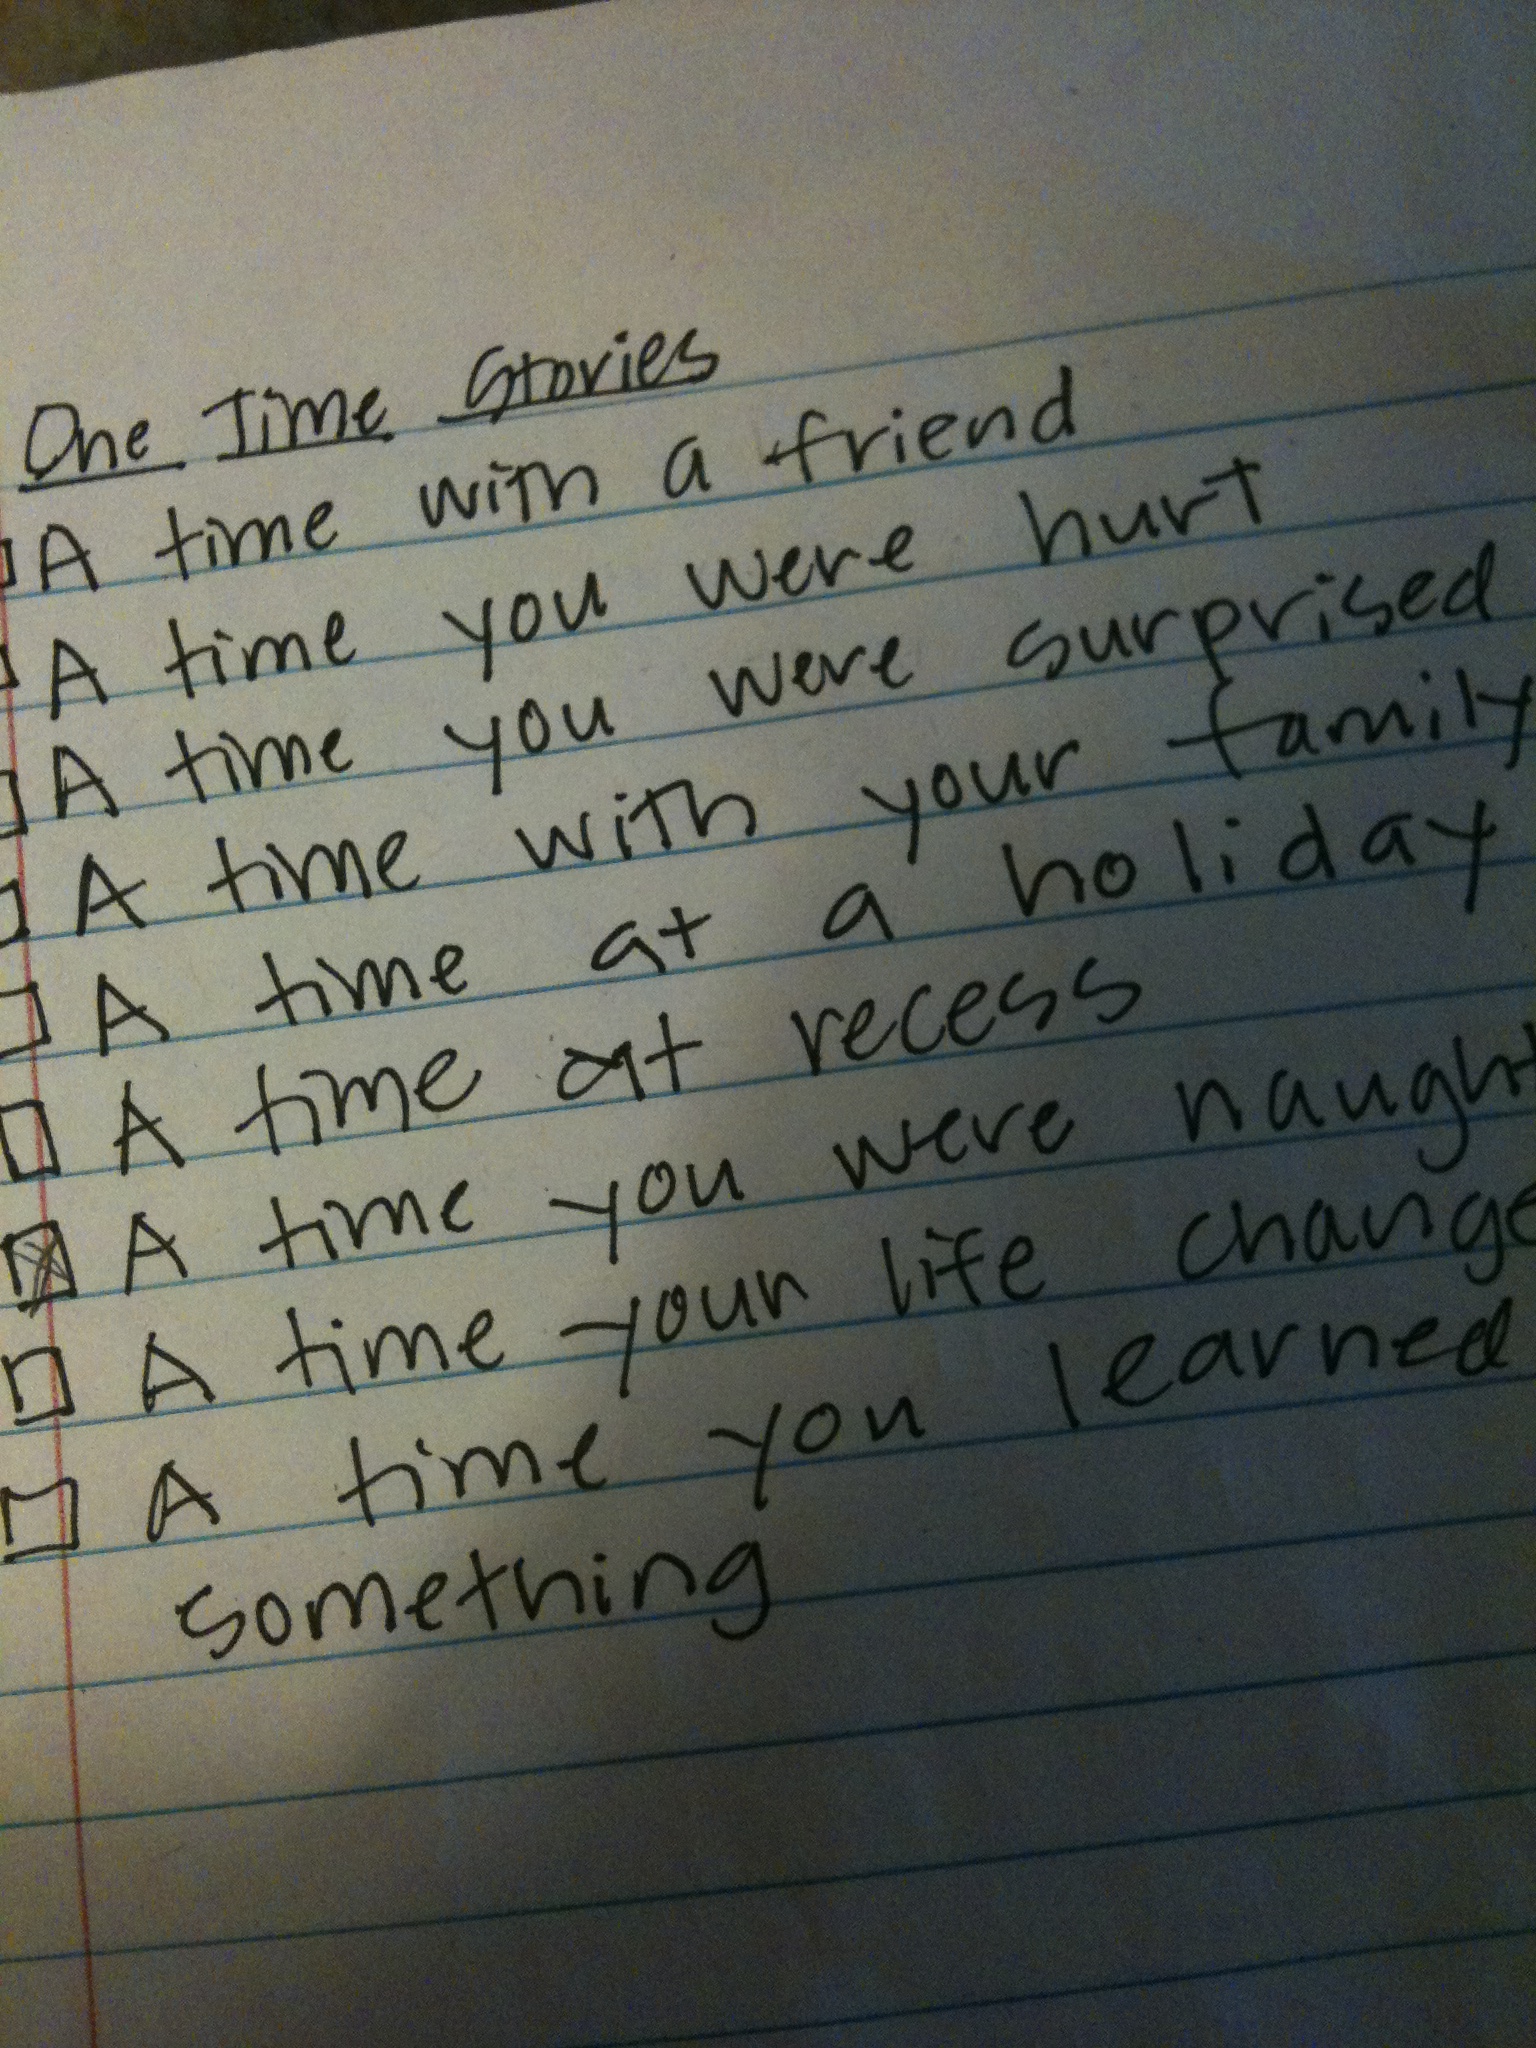 One Time Stories
A time with a friend
A time you were hurt
A time you were surprised
A time with your family
A time at a holiday
A time at recess
A time you were naught
A time your life change
A time you learned
something